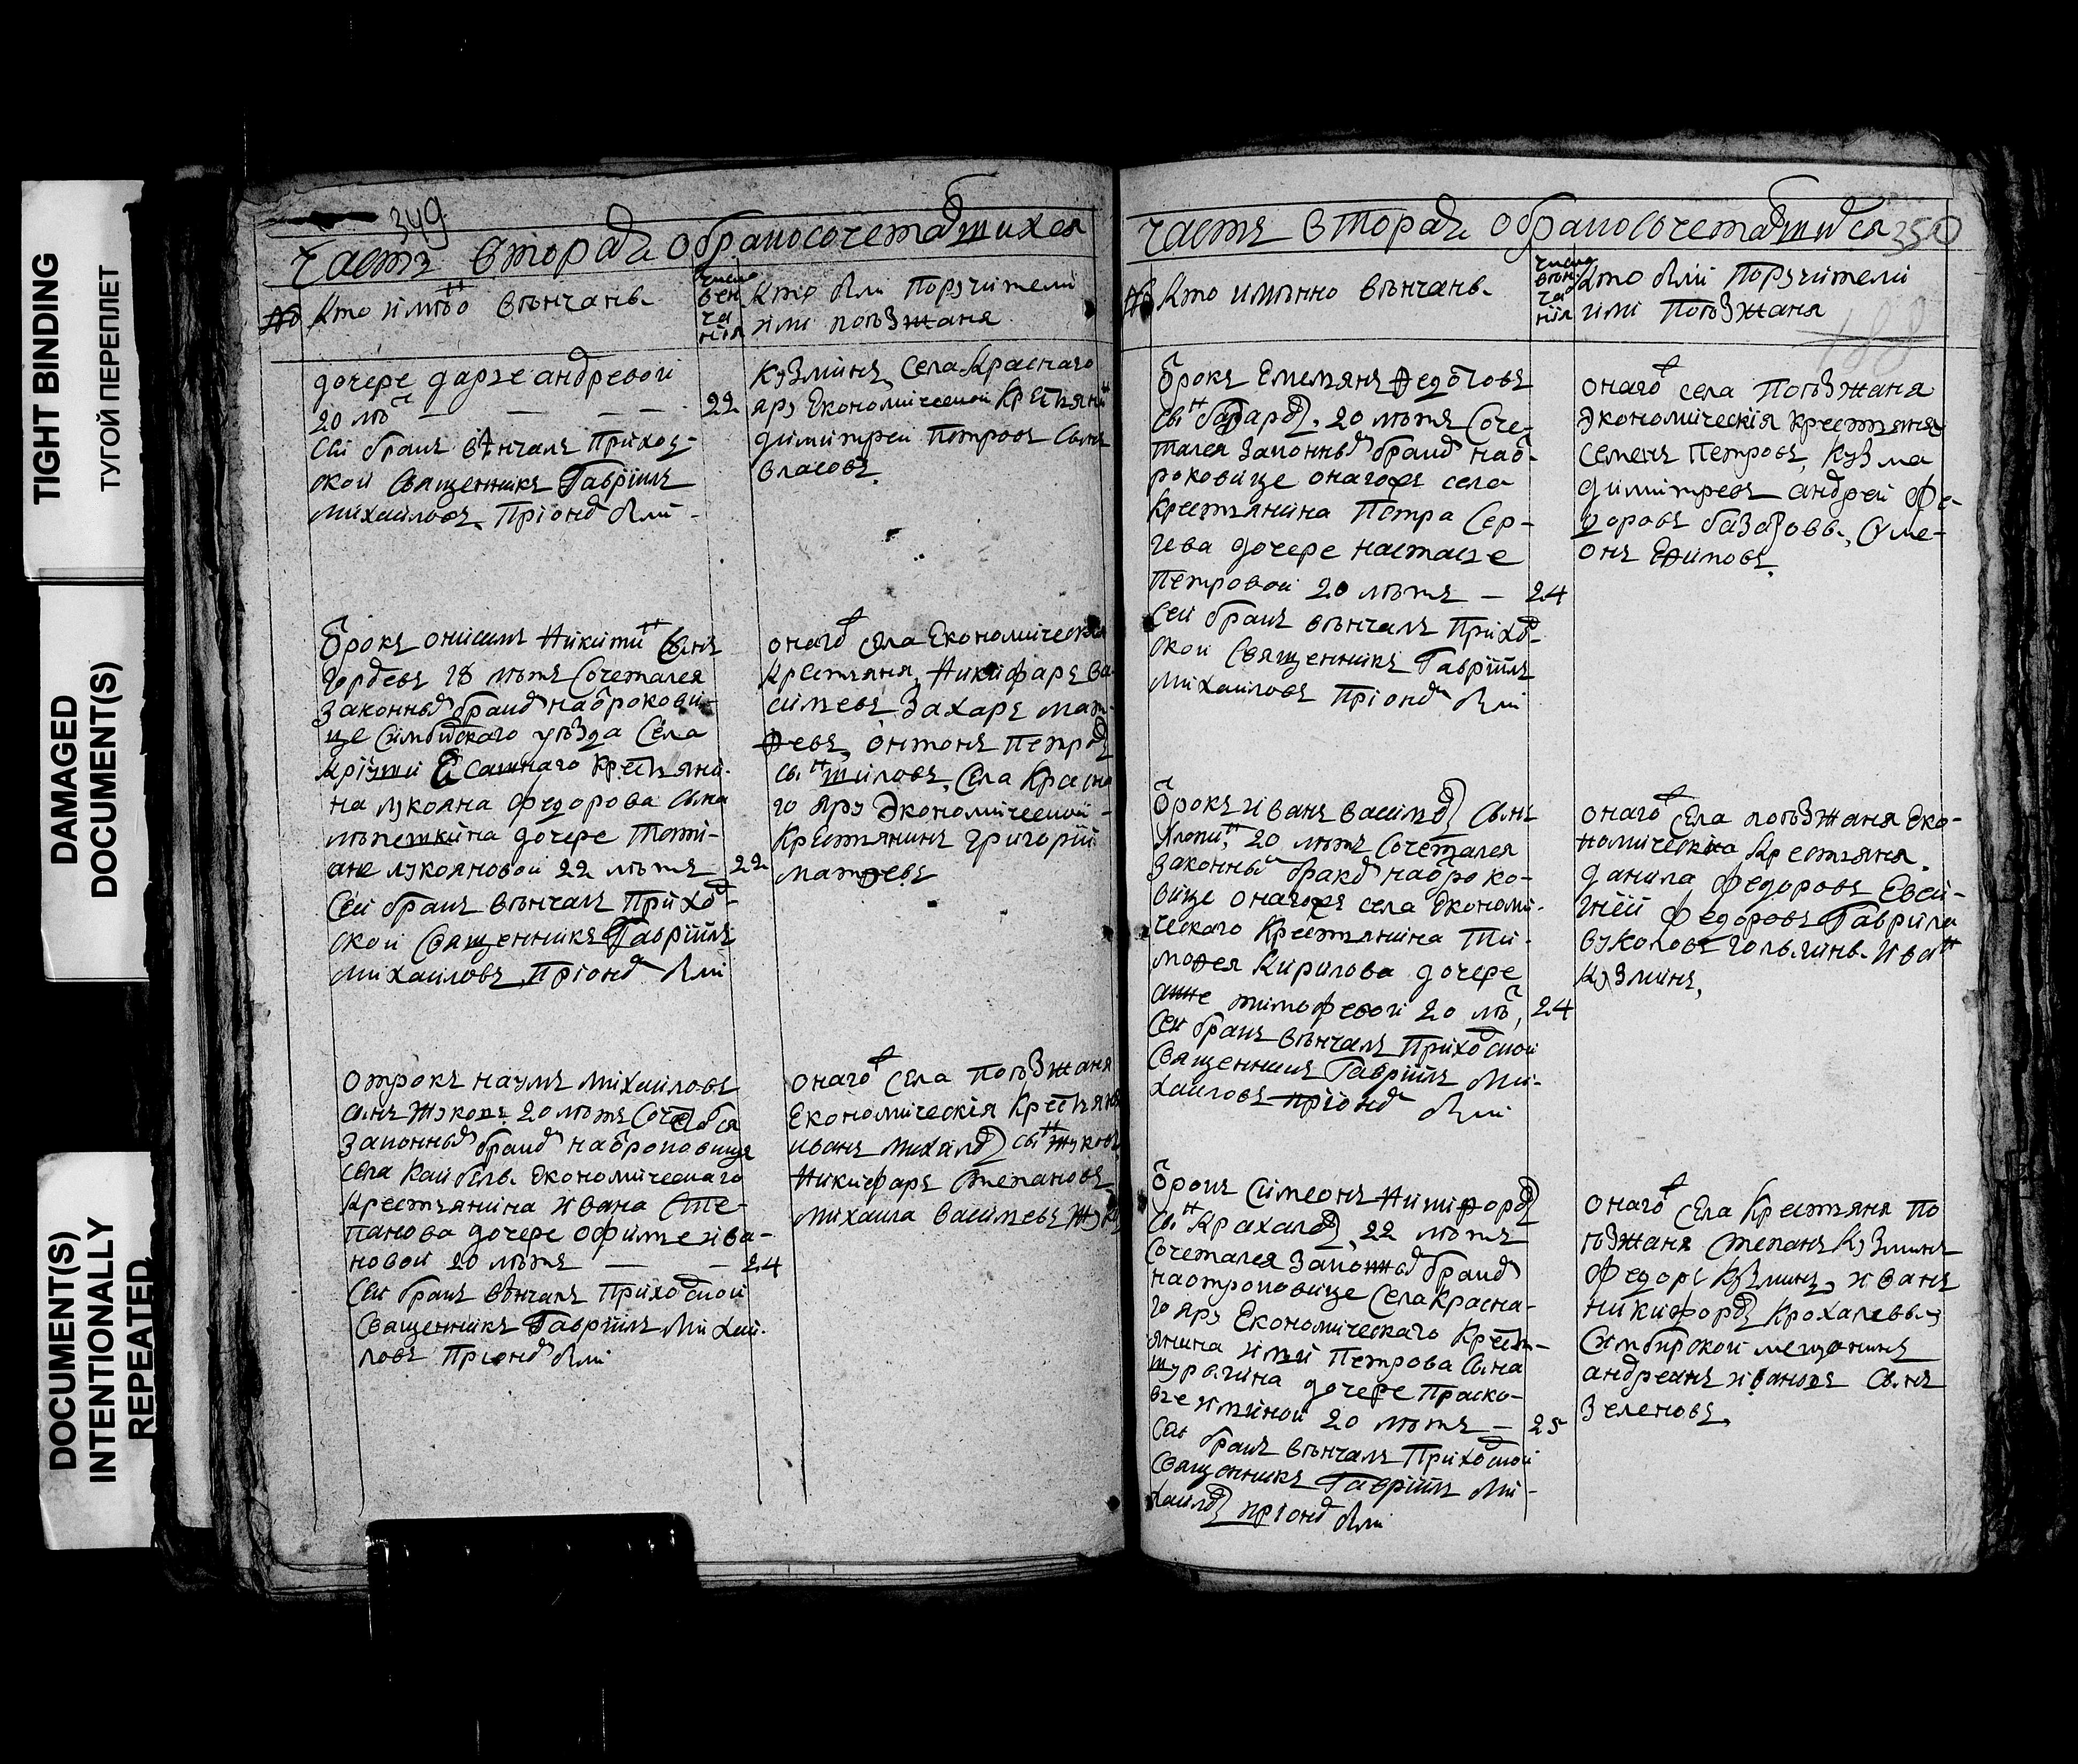 TIGHT BINDING
ТУГОЙ ПЕРЕПЛЕТ
DAMAGED
DOCUMENT(S)
DOCUMENT(S)
INTENTIONALLY
REPEATED
349
часть вторая о бракосочетавшихся
№
кто имяно венчанъ
число
вен
ча
нія
кто были поручители
или поѣзжаня
дочере дарье андревой
20 лѣт 22
сей бракъ вѣнчалъ приход
ской священникъ Гавріилъ
михайловъ при онд были
кузминъ села Краснаго
яру Економической крестьянин
димитрей петровъ сынъ
власовъ
отрокъ онисимъ никитин сынъ
гордевъ 18 лѣтъ сочетался
законным браком на отрокови
це симбирскаго уѣзда села
Крiуши Есашнаго крестьяни
на лукояна федорова сына
лѣпешкина дочере татi
ане лукояновой 22 лѣтъ 22
сей бракъ вѣнчалъ приход
ской священникъ Гавріилъ
михайловъ при онд были
онаго села Економически
крестьяня никифаръ ва
силье­въ захаръ мат
ѳевъ онтонъ петров
сын шиловъ села Красна
го яру Экономической
крестьянинъ григорій
матѳевъ
отрокъ наумъ михайловъ
сынъ жуковъ 20 лѣтъ сочетался
законным браком на отроковице
села кайбелъ экономическаго
крестьянина ивана сте
панова дочере офимье ива
новой 20 лѣтъ 24
сей бракъ вѣнчалъ приходской
священникъ Гавріилъ михай
ловъ при онд были
онаго села поѣзжаня
Економическія крестьяня
иванъ михалов сын жуковъ
никифаръ степановъ
михаила васильевъ
часть вторая о бракосочетавшихся
350
188
№
кто имянно вѣнчанъ
число
вѣн
ча
нія
кто были поручители
или поѣзжаня
отрокъ емельянъ ѳедотовъ
сын 20 лѣтъ соче
тался законным браком на от
роковице онагожъ села
крестьянина петра сер
гева дочере настасье
петровой 20 лѣтъ 24
сей бракъ вѣнчалъ приход
ской священникъ Гавріилъ
михайловъ при онд были
онаго села поѣзжаня
экономическія крестьяня
семенъ петровъ, кузма
димитревъ андрей фе
доровъ симе
онъ
отрокъ иванъ васильев сынъ
20 лѣтъ сочетался
законным браком на отроко
вице онагожъ села экономи
ческаго крестьянина ти
моѳея кирилова дочере
анне тимофевой 20 лѣт 24
сей бракъ вѣнчалъ приходской
священникъ Гавріилъ ми
хайловъ при онд были
онаго села поѣзжаня эко
номическия крестьяня
данила федоровъ евси
гнѣй федоровъ гаврила
вуколовъ иван
кузминъ
отрокъ симеонъ никиѳоров
сын крахалев, 22 лѣтъ
сочетался законным браком
на отроковице села красна
го яру Економическаго крестъ
янина ильи петрова сына
шурагина дочере праско
вье ильиной 20 лѣтъ 25
сей бракъ вѣнчалъ приходской
священникъ Гавріилъ ми
хайлов при онд были
онаго села крестьяня по
ѣзжаня степанъ кузминъ
федоръ кузминъ иванъ
никифоров крохалевъ
симбирской мещанинъ
андреянъ ивановъ сынъ
зеленовъ